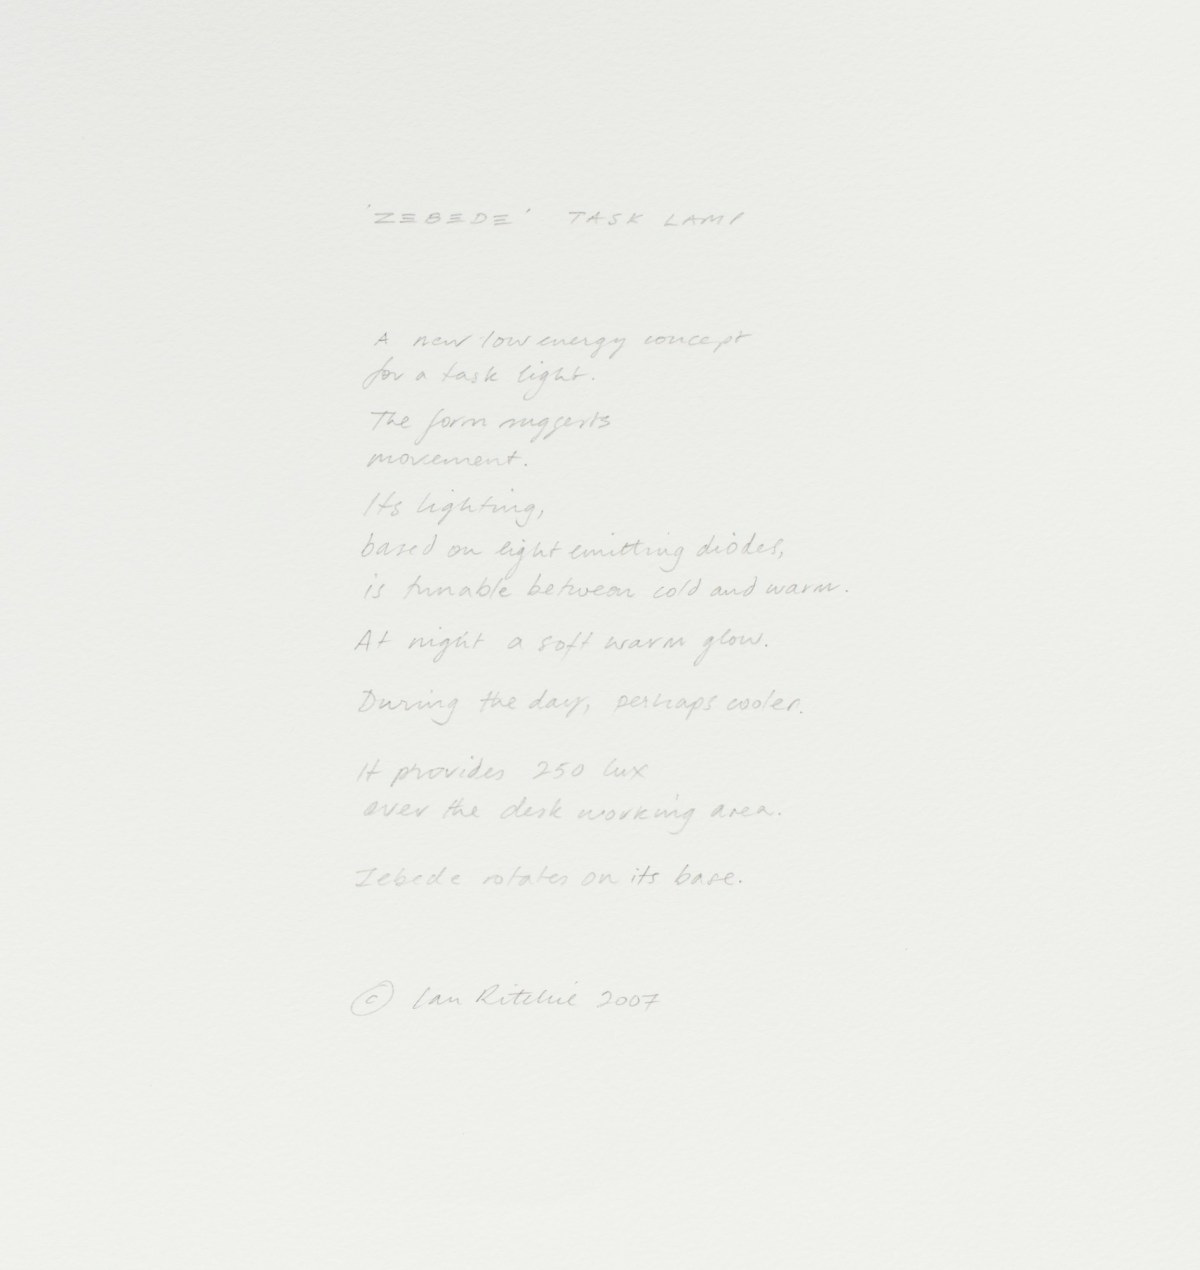 'ZEBEDE' TASK LAMP
A new low energy concept
for a task light.
The form suggests
movement.
Its lighting,
based on light emitting diodes,
is tunable between cold and warm.
At night a soft warm glow.
During the day, perhaps cooler.
It provides 250 lux
over the desk working area.
Zebede rotates on its base.
© Ian Ritchie 2007